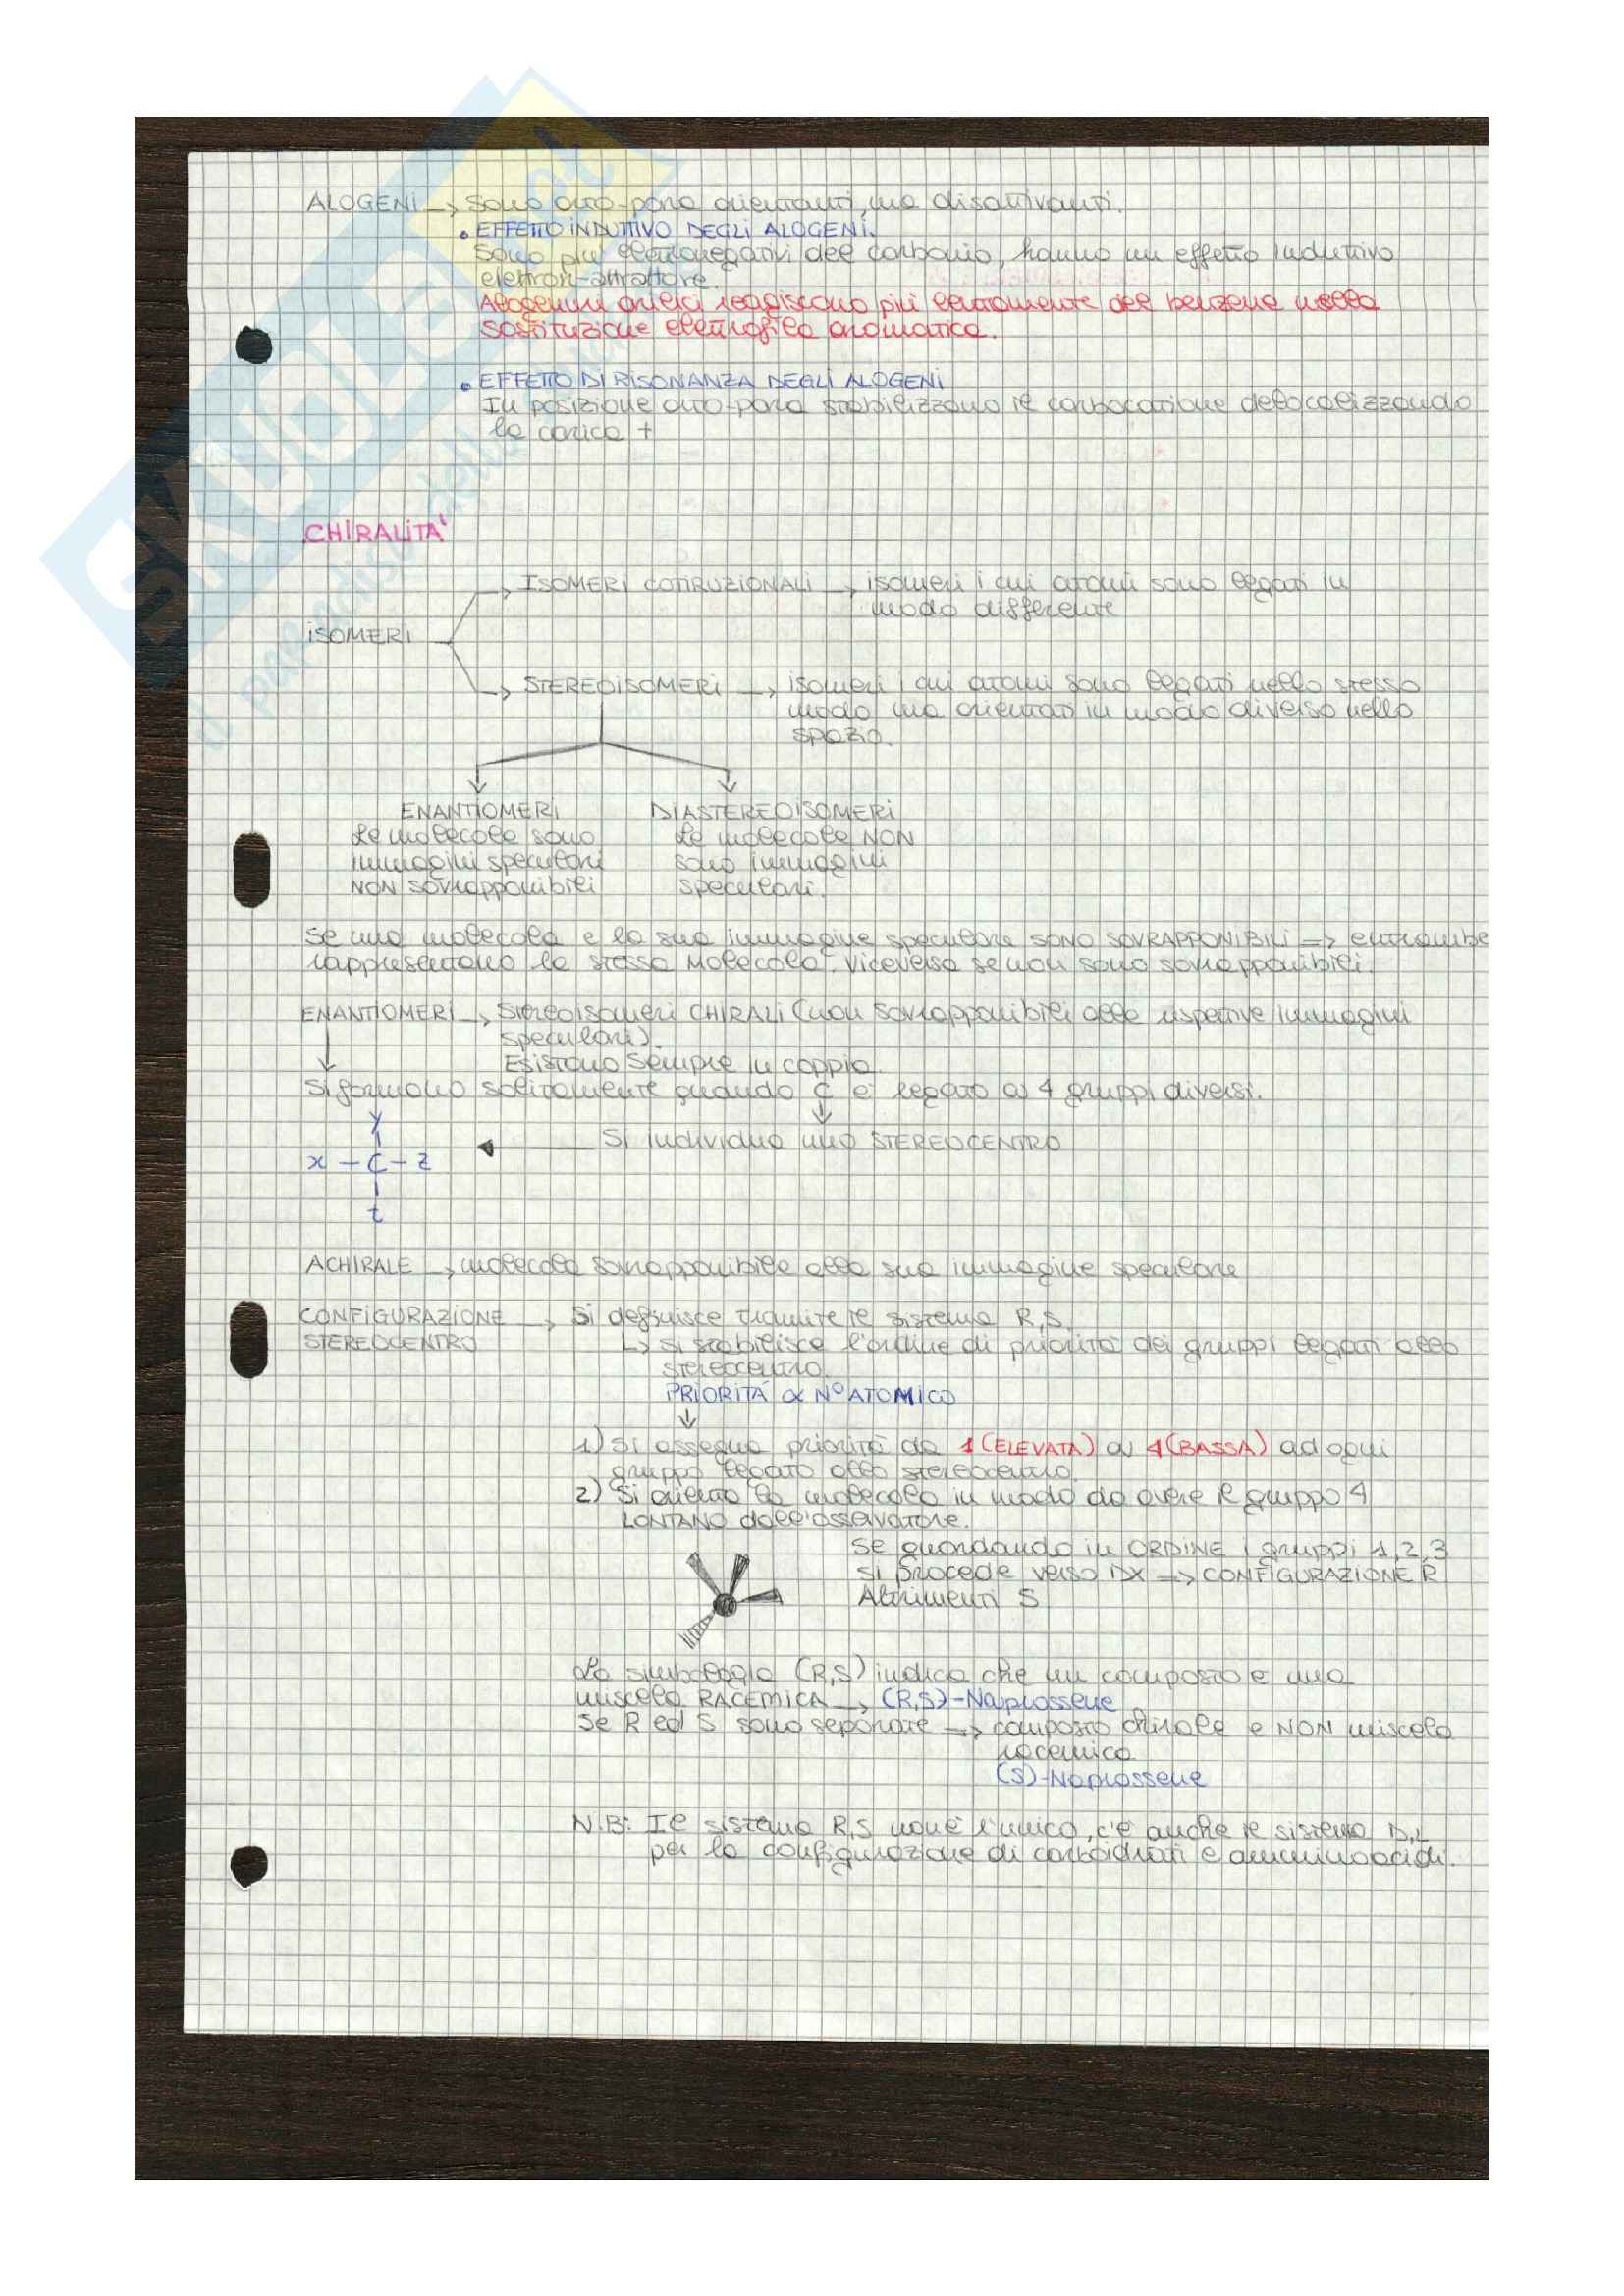 ALOGENI → Sono orto-para orientanti, ma disattivanti.
• EFFETTO INDUTTIVO DEGLI ALOGENI.
Sono più elettronegativi del carbonio, hanno un effetto induttivo
elettron-attrattore.
Alogenuri arilici reagiscono più lentamente del benzene nella
sostituzione elettrofila aromatica.
• EFFETTO DI RISONANZA DEGLI ALOGENI
In posizione orto-para stabilizzano il carbocatione delocalizzando
la carica +
CHIRALITA'
→ ISOMERI COTIRUZIONALI → isomeri i cui atomi sono legati in
modo differente
ISOMERI
→ STEREOISOMERI → isomeri i cui atomi sono legati nello stesso
modo ma orientati in modo diverso nello
spazio.
ENANTIOMERI
Le molecole sono
immagini speculari
NON sovrapponibili
DIASTEREOISOMERI
Le molecole NON
sono immagini
speculari.
Se una molecola e la sua immagine speculare SONO SOVRAPPONIBILI → entrambe
rappresentano la stessa molecola. Viceversa se non sono sovrapponibili.
ENANTIOMERI → Stereoisomeri CHIRALI (non sovrapponibili alle rispettive immagini
speculari).
Esistono sempre in coppia.
↓
Si formano solitamente quando C è legato a 4 gruppi diversi.
↓
Si individua uno STEREOCENTRO
y
x - C - z
t
ACHIRALE → molecola sovrapponibile alla sua immagine speculare
CONFIGURAZIONE → Si definisce tramite il sistema R,S.
STEREOCENTRO ↳ si stabilisce l'ordine di priorità dei gruppi legati allo
stereocentro.
PRIORITÀ α N° ATOMICO
↓
1) Si assegna priorità da 1 (ELEVATA) a 4 (BASSA) ad ogni
gruppo legato allo stereocentro.
2) Si orienta la molecola in modo da avere il gruppo 4
LONTANO dall'osservatore.
Se guardando in ORDINE i gruppi 1, 2, 3
si procede verso DX → CONFIGURAZIONE R
Altrimenti S
La simbologia (R,S) indica che un composto è una
miscela RACEMICA → (R,S)-Naprossene
Se R ed S sono separate → composto chirale e NON miscela
racemica
(S)-Naprossene
N.B: Il sistema R,S non è l'unico, c'è anche il sistema D,L
per la configurazione di carboidrati e amminoacidi.